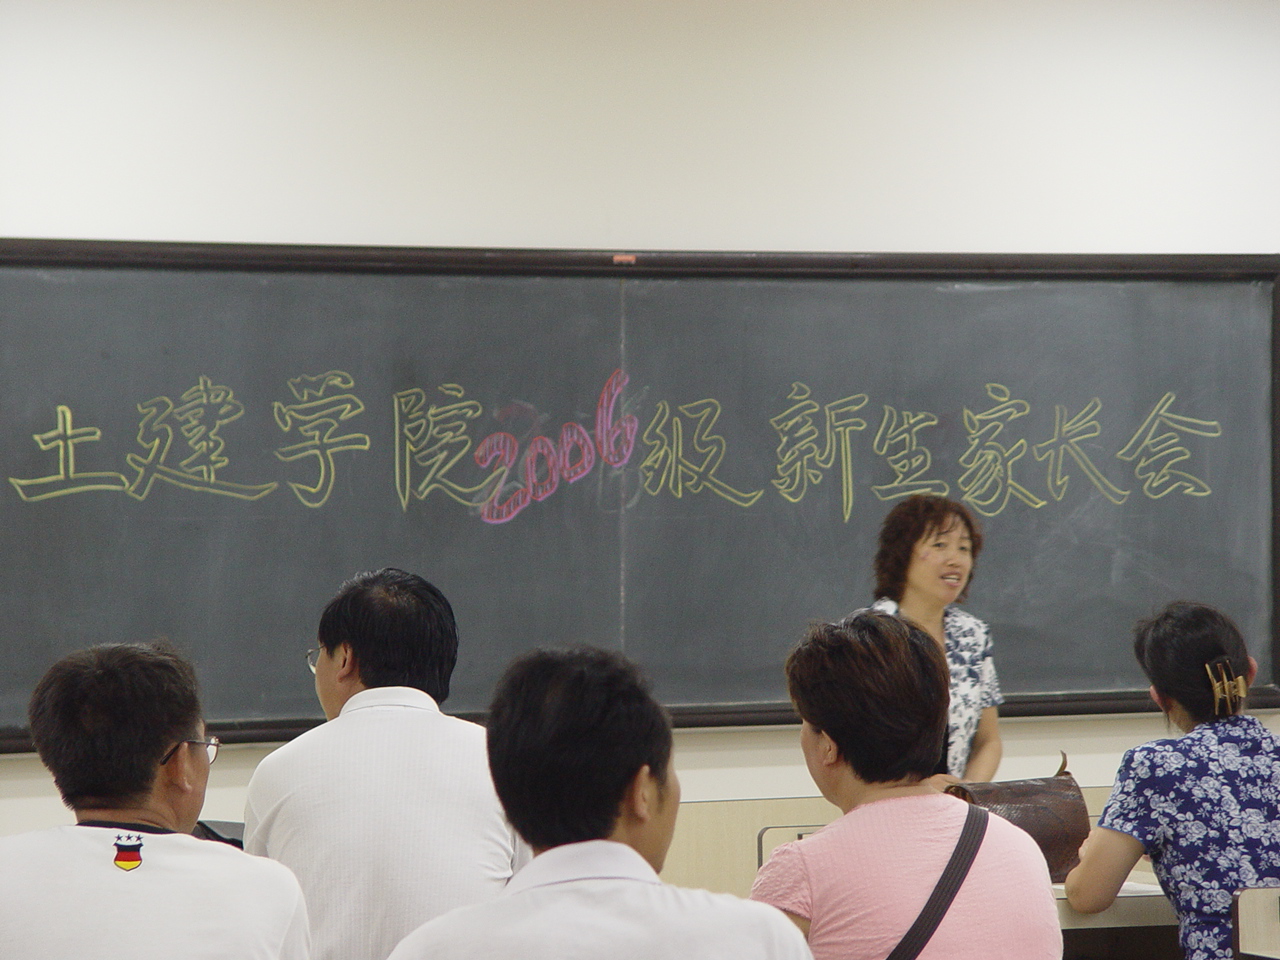 土建学院2006级新生家长会